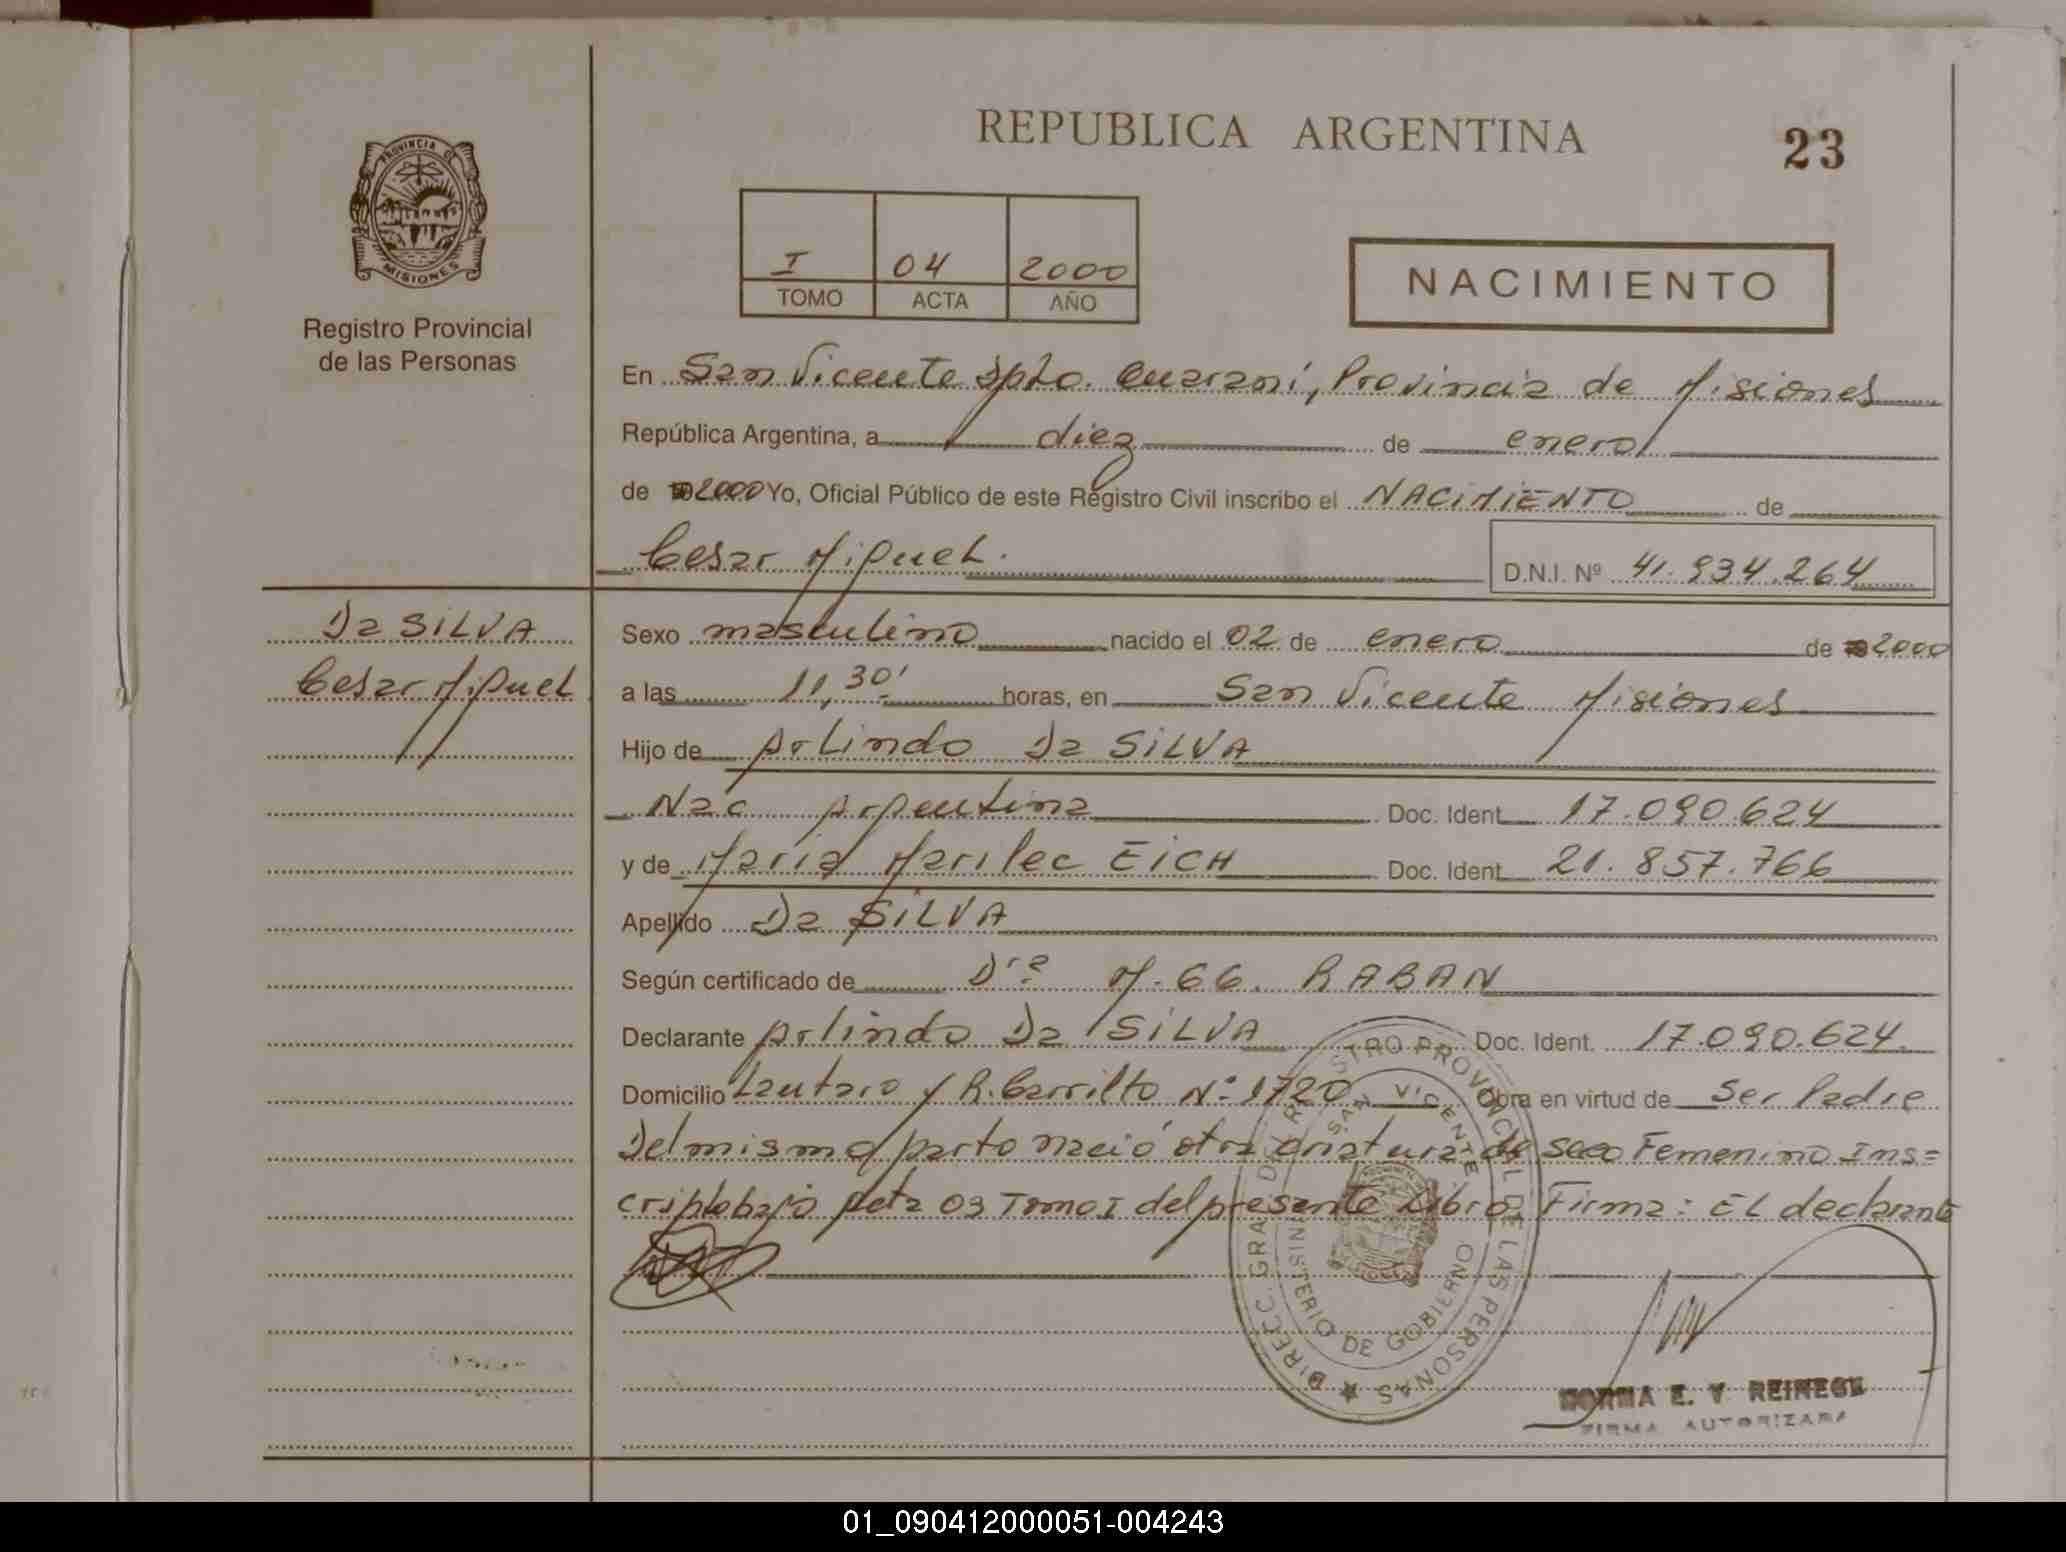 REPUBLICA ARGENTINA
23
PROVINCIA DE
MISIONES
Registro Provincial
de las Personas
I 04 2000
TOMO ACTA AÑO
NACIMIENTO
En San Vicente Dpto. Guaraní, Provincia de Misiones
República Argentina, a diez de enero
de 2000 Yo, Oficial Público de este Registro Civil inscribo el NACIMIENTO de
Cesar Miguel.
D.N.I. Nº 41.934.264
Da SILVA
Cesar Miguel
Sexo masculino nacido el 02 de enero de 2000
a las 11,30' horas, en San Vicente Misiones
Hijo de Arlindo Da SILVA
Nac Argentina Doc. Ident. 17.090.624
y de Maria Marilec EICH Doc. Ident. 21.857.766
Apellido Da SILVA
Según certificado de Dra M. 66. RABAN
Declarante Arlindo Da SILVA Doc. Ident. 17.090.624
Domicilio Lautaro y R. Carrillo Nº 1720 Obra en virtud de Ser Padre
Del mismo parto nació otra criatura de sexo Femenino Ins=
cripto bajo Acta 03 Tomo I del presente Libro. Firma: EL declarante
DIREC. GRAL. DE REGISTRO PROVINCIAL DE LAS PERSONAS
SAN VICENTE
MINISTERIO DE GOBIERNO
NORMA E. V. REINECK
FIRMA AUTORIZADA
01_090412000051-004243